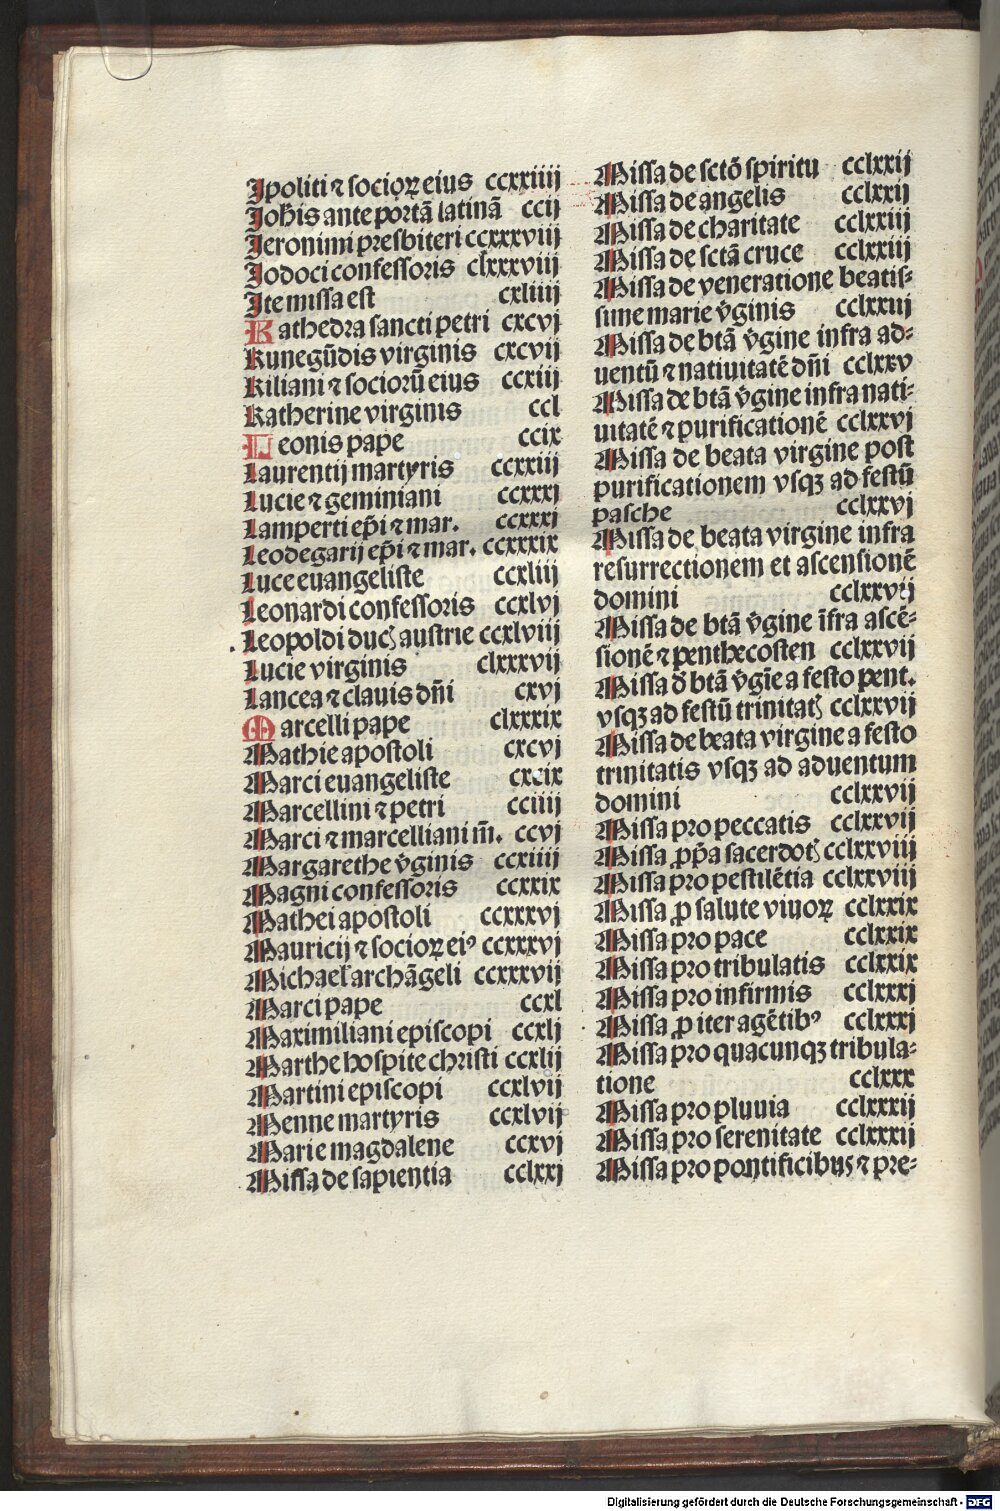 Ipoliti ⁊ socioꝝ eius ccxxiiij
Joh̄is ante portā latinā ccij
Jeronimi presbiteri ccxxxviij
Jodoci confessoris clxxxviij
Ite missa est cxliiij
Kathedra sancti petri cxcvj
Kunegūdis virginis cxcvij
Kiliani ⁊ sociorū eius ccxiij
Katherine virginis ccl
Leonis pape ccix
Laurentij martyris ccxxiij
Lucie ⁊ geminiani ccxxxj
Lamperti ep̄i ⁊ mar. ccxxxj
Leodegarij ep̄i ⁊ mar. ccxxxix
Luce euangeliste ccxliij
Leonardi confessoris ccxlvj
Leopoldi ducꝭ austrie ccxlviij
Lucie virginis clxxxvij
Lancea ⁊ clauis dn̄i cxvj
Marcelli pape clxxxix
Mathie apostoli cxcvj
Marci euangeliste cxcix
Marcellini ⁊ petri cciiij
Marci ⁊ marcelliani m̄. ccvj
Margarethe v̄ginis ccxiiij
Magni confessoris ccxxix
Mathei apostoli ccxxxvj
Mauricij ⁊ socioꝝ eiꝰ ccxxxvj
Michael' archāgeli ccxxxvij
Marci pape ccxl
Maximiliani episcopi ccxlj
Marthe hospite christi ccxlij
Martini episcopi ccxlvij
Menne martyris ccxlvij
Marie magdalene ccxvj
Missa de sapientia cclxxj
Missa de sctō spiritu cclxxij
Missa de angelis cclxxij
Missa de charitate cclxxiij
Missa de sctā cruce cclxxiij
Missa de veneratione beatis⸗
sime marie v̄ginis cclxxiij
Missa de btā v̄gine infra ad⸗
uentū ⁊ natiuitatē dn̄i cclxxv
Missa de btā v̄gine infra nati⸗
uitatē ⁊ purificationē cclxxvj
Missa de beata virgine post
purificationem vsqꝫ ad festū
pasche cclxxvj
Missa de beata virgine infra
resurrectionem et ascensionē
domini cclxxvij
Missa de btā v̄gine īfra ascē⸗
sionē ⁊ penthecosten cclxxvij
Missa đ btā v̄gīe a festo pent.
vsqꝫ ad festū trinitatꝭ cclxxvij
Missa de beata virgine a festo
trinitatis vsqꝫ ad aduentum
domini cclxxvij
Missa pro peccatis cclxxvij
Missa ꝓ pp̄a sacerdotꝭ cclxxviij
Missa pro pestilētia cclxxviij
Missa ꝓ salute viuoꝝ cclxxix
Missa pro pace cclxxix
Missa pro tribulatis cclxxix
Missa pro infirmis cclxxxj
Missa ꝓ iter agētibꝰ cclxxxj
Missa pro quacunqꝫ tribula⸗
tione cclxxx
Missa pro pluuia cclxxxij
Missa pro serenitate cclxxxij
Missa pro pontificibuꝫ ⁊ pre⸗
Digitalisierung gefördert durch die Deutsche Forschungsgemeinschaft - DFG